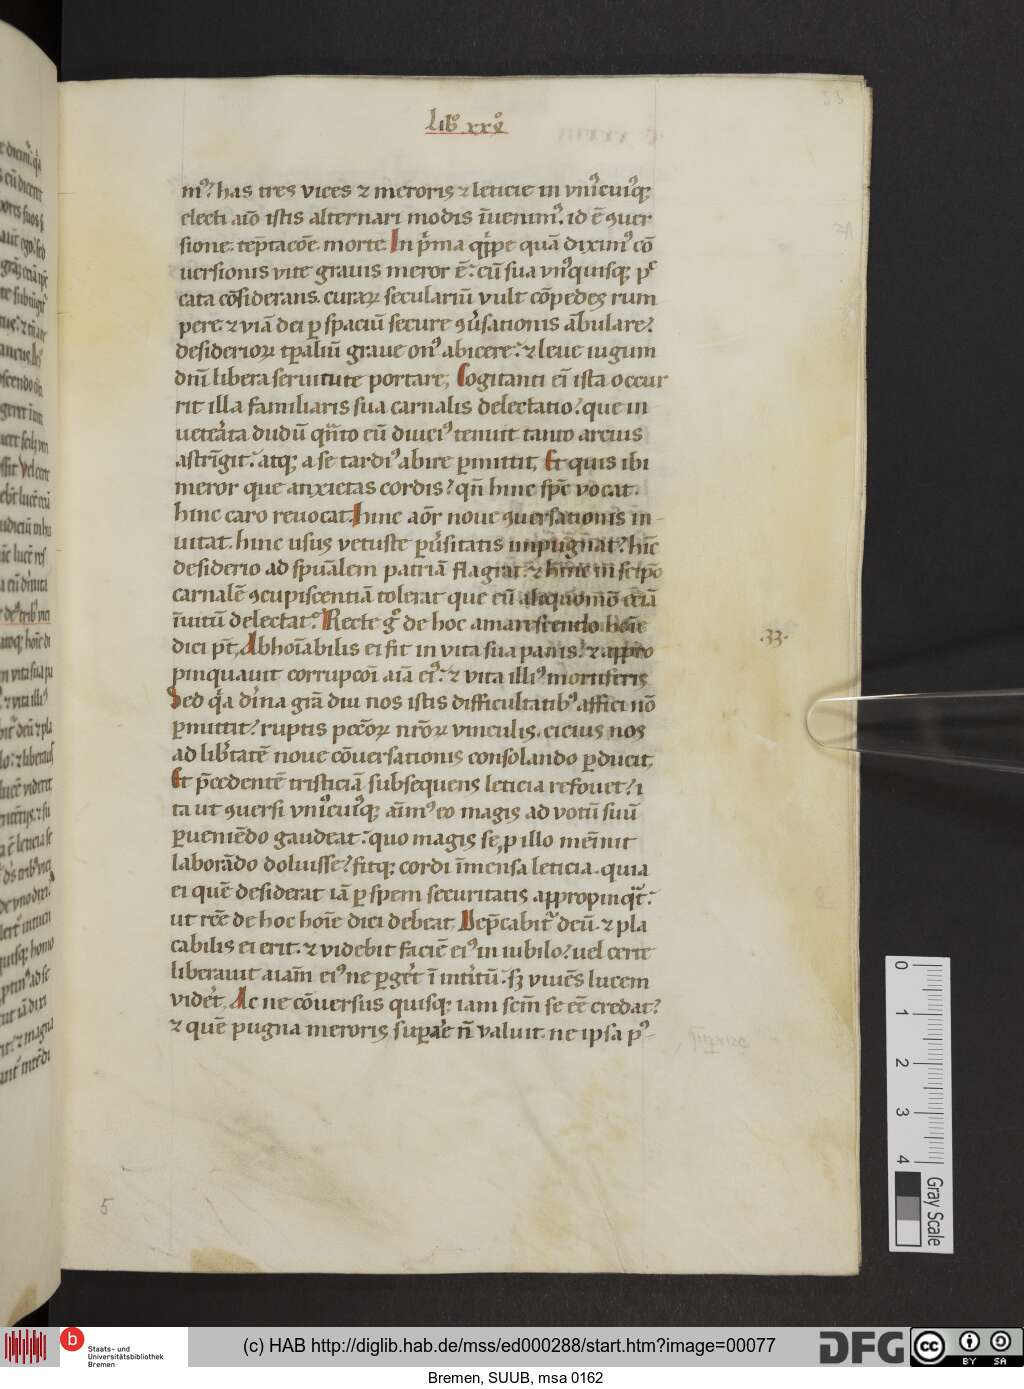 53
Lib᷒ xxv᷒
m᷒? has tres vices ⁊ meroris ⁊ leticie in vni᷒cui᷒q;
electi aūo istis alternari modis īuenim᷒. id ē ꝯuer
sione. tēptacōē. morte. In p̄ma qp̄pe quā dixim᷒ cō
uersionis vite grauis meror ē: cū sua vn᷒quisq; p̄
cata cōsiderans. curaꝝ seculariū vult cōpedes rum
pere. ⁊ viā dei ꝑ spaciū secure ꝯūsationis ābulare?
desiderioꝝ tꝑaliū graue on᷒ abicere? ⁊ leue iugum
dnī libera seruitute portare; Cogitanti eī ista occur
rit illa familiaris sua carnalis delectatio? que in
ueteāta dudū qn̄to eū diuci᷒ tenuit tanto arcius
astrīgit? atq; a se tardi᷒ abire ꝑmittit, Et quis ibi
meror que anxietas cordis? qn̄ hinc sp̄c vocat.
hinc caro reuocat. hinc aōr noue ꝯuersationis in-
uitat. hinc usus vetuste ꝑūsitatis impugnat? hīc
desiderio ad spūalem patriā flagrat. ⁊ hinc in seipō
carnalē ꝯcupiscentiā tolerat que eū aliquomō ecīā
īuitū delectat? Recte g° de hoc amarescendo hoīe
dici pt̄, Abhoīabilis ei fit in vita sua panis? ⁊ appr̄o
pinquauit corrupcōi aīā ei᷒? ⁊ vita illi᷒ mortiferis
Sed q̄a dīna grā diu nos istis difficultatib᷒ affici nō
ꝑmittit? ruptis pccōꝝ nrōꝝ vinculis. cicius nos
ad libtatē noue cōuersationis consolando ꝑducit,
Et p̄cedentē tristiciā subsequens leticia refouet? i
ta ut ꝯuersi vni᷒cui᷒q; aīm᷒ eo magis ad votū suū
ꝑueniēdo gaudeat? quo magis se ꝓ illo memīit
laborādo doluisse? fitq; cordi īmensa leticia. quia
ei quē desiderat iā ꝑ spem securitatis appropinqt̄?
ut rcē de hoc hoīe dici debeat. Dep̄cabit᷒ deū. ⁊ pla
cabilis ei erit. ⁊ videbit faciē ei᷒ in iubilo? uel certe
liberauit aīam ei᷒ ne ꝑgēt ī intītū? sꝫ viuēs lucem
vidēt. Ac ne cōuersus quisq; iam scm̄ se eē credat?
⁊ quē pugna meroris suꝑaē n̄ valuit. ne ipsa p᷒-
.33.
5
0
1
2
3
4
Gray Scale
b
Staats- und
Universitätsbibliothek
Bremen
(c) HAB http://diglib.hab.de/mss/ed000288/start.htm?image=00077
DFG
cc
BY SA
Bremen, SUUB, msa 0162